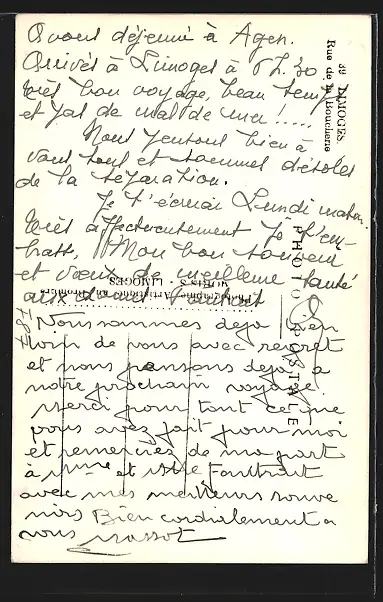 Avons déjeuné à Agen.
Arrivés à Limoges à 6h.30
très bon voyage, beau temps
et pas de mal de mer !.....
Nous pensons bien à
vous tous et sommes désolés
de la séparation.
Je t'écrirai Lundi matin.
très affectueusement Je t'em-
brasse, Mon bon souvenir
et vœux de meilleure santé
aux
Nous sommes deja bien
loin de vous avec regret
et nous pensons deja a
notre prochain voyage.
Merci pour tout ce que
vous avez fait pour moi
et remerciez de ma part
à Mme et Mlle
avec mes meilleurs souve
nirs Bien cordialement a
vous
39 LIMOGES
Rue de la Boucherie
PHOTO POSTALE
787